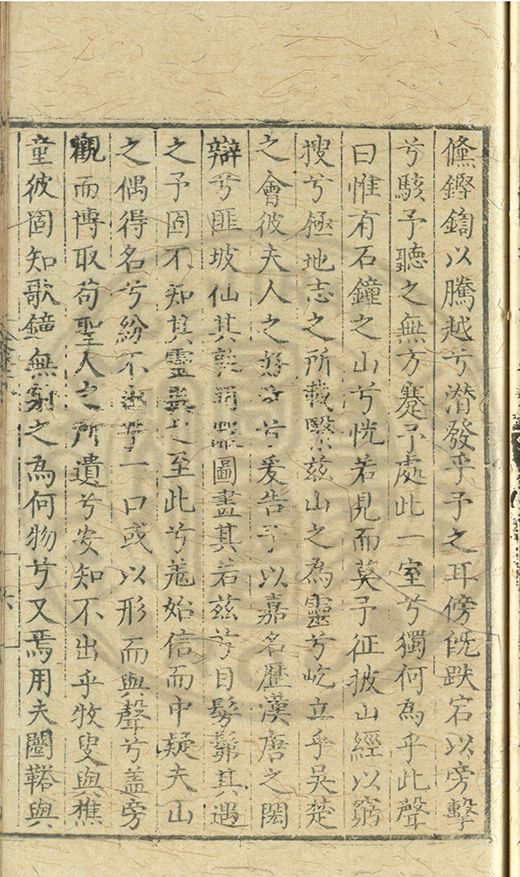 儵鏗鍧以騰越兮潛發乎予之耳傍旣跌宕以旁擊
兮駭予聽之無方蹇予處此一室兮獨何為乎此聲
曰惟有石鐘之山兮恍若見而莫予征披山經以窮
搜兮極地志之所載繄茲山之為靈兮屹立乎吳楚
之會彼夫人之好奇兮爰告予以嘉名歷漢唐之閎
辯兮匪坡仙其孰圖畫其若茲兮目髣髴其遇
之予固不知其靈異之至此兮羌始信而中疑夫山
之偶得名兮紛不一口或以形而與聲兮蓋旁
觀而博取苟聖人之所遺兮安知不出乎牧叟與樵
童彼固知歌鐘無射之為何物兮又焉用夫闛鞳與